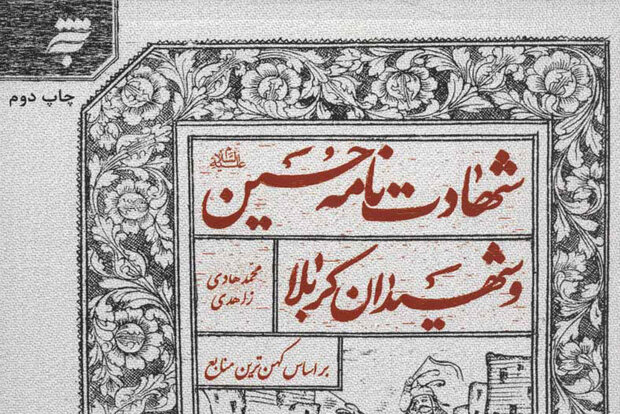 چاپ دوم
شهادت نامه حسین علیه السلام
و شهیدان کربلا
محمد هادی
زاهدی
بر اساس کهن ترین منابع